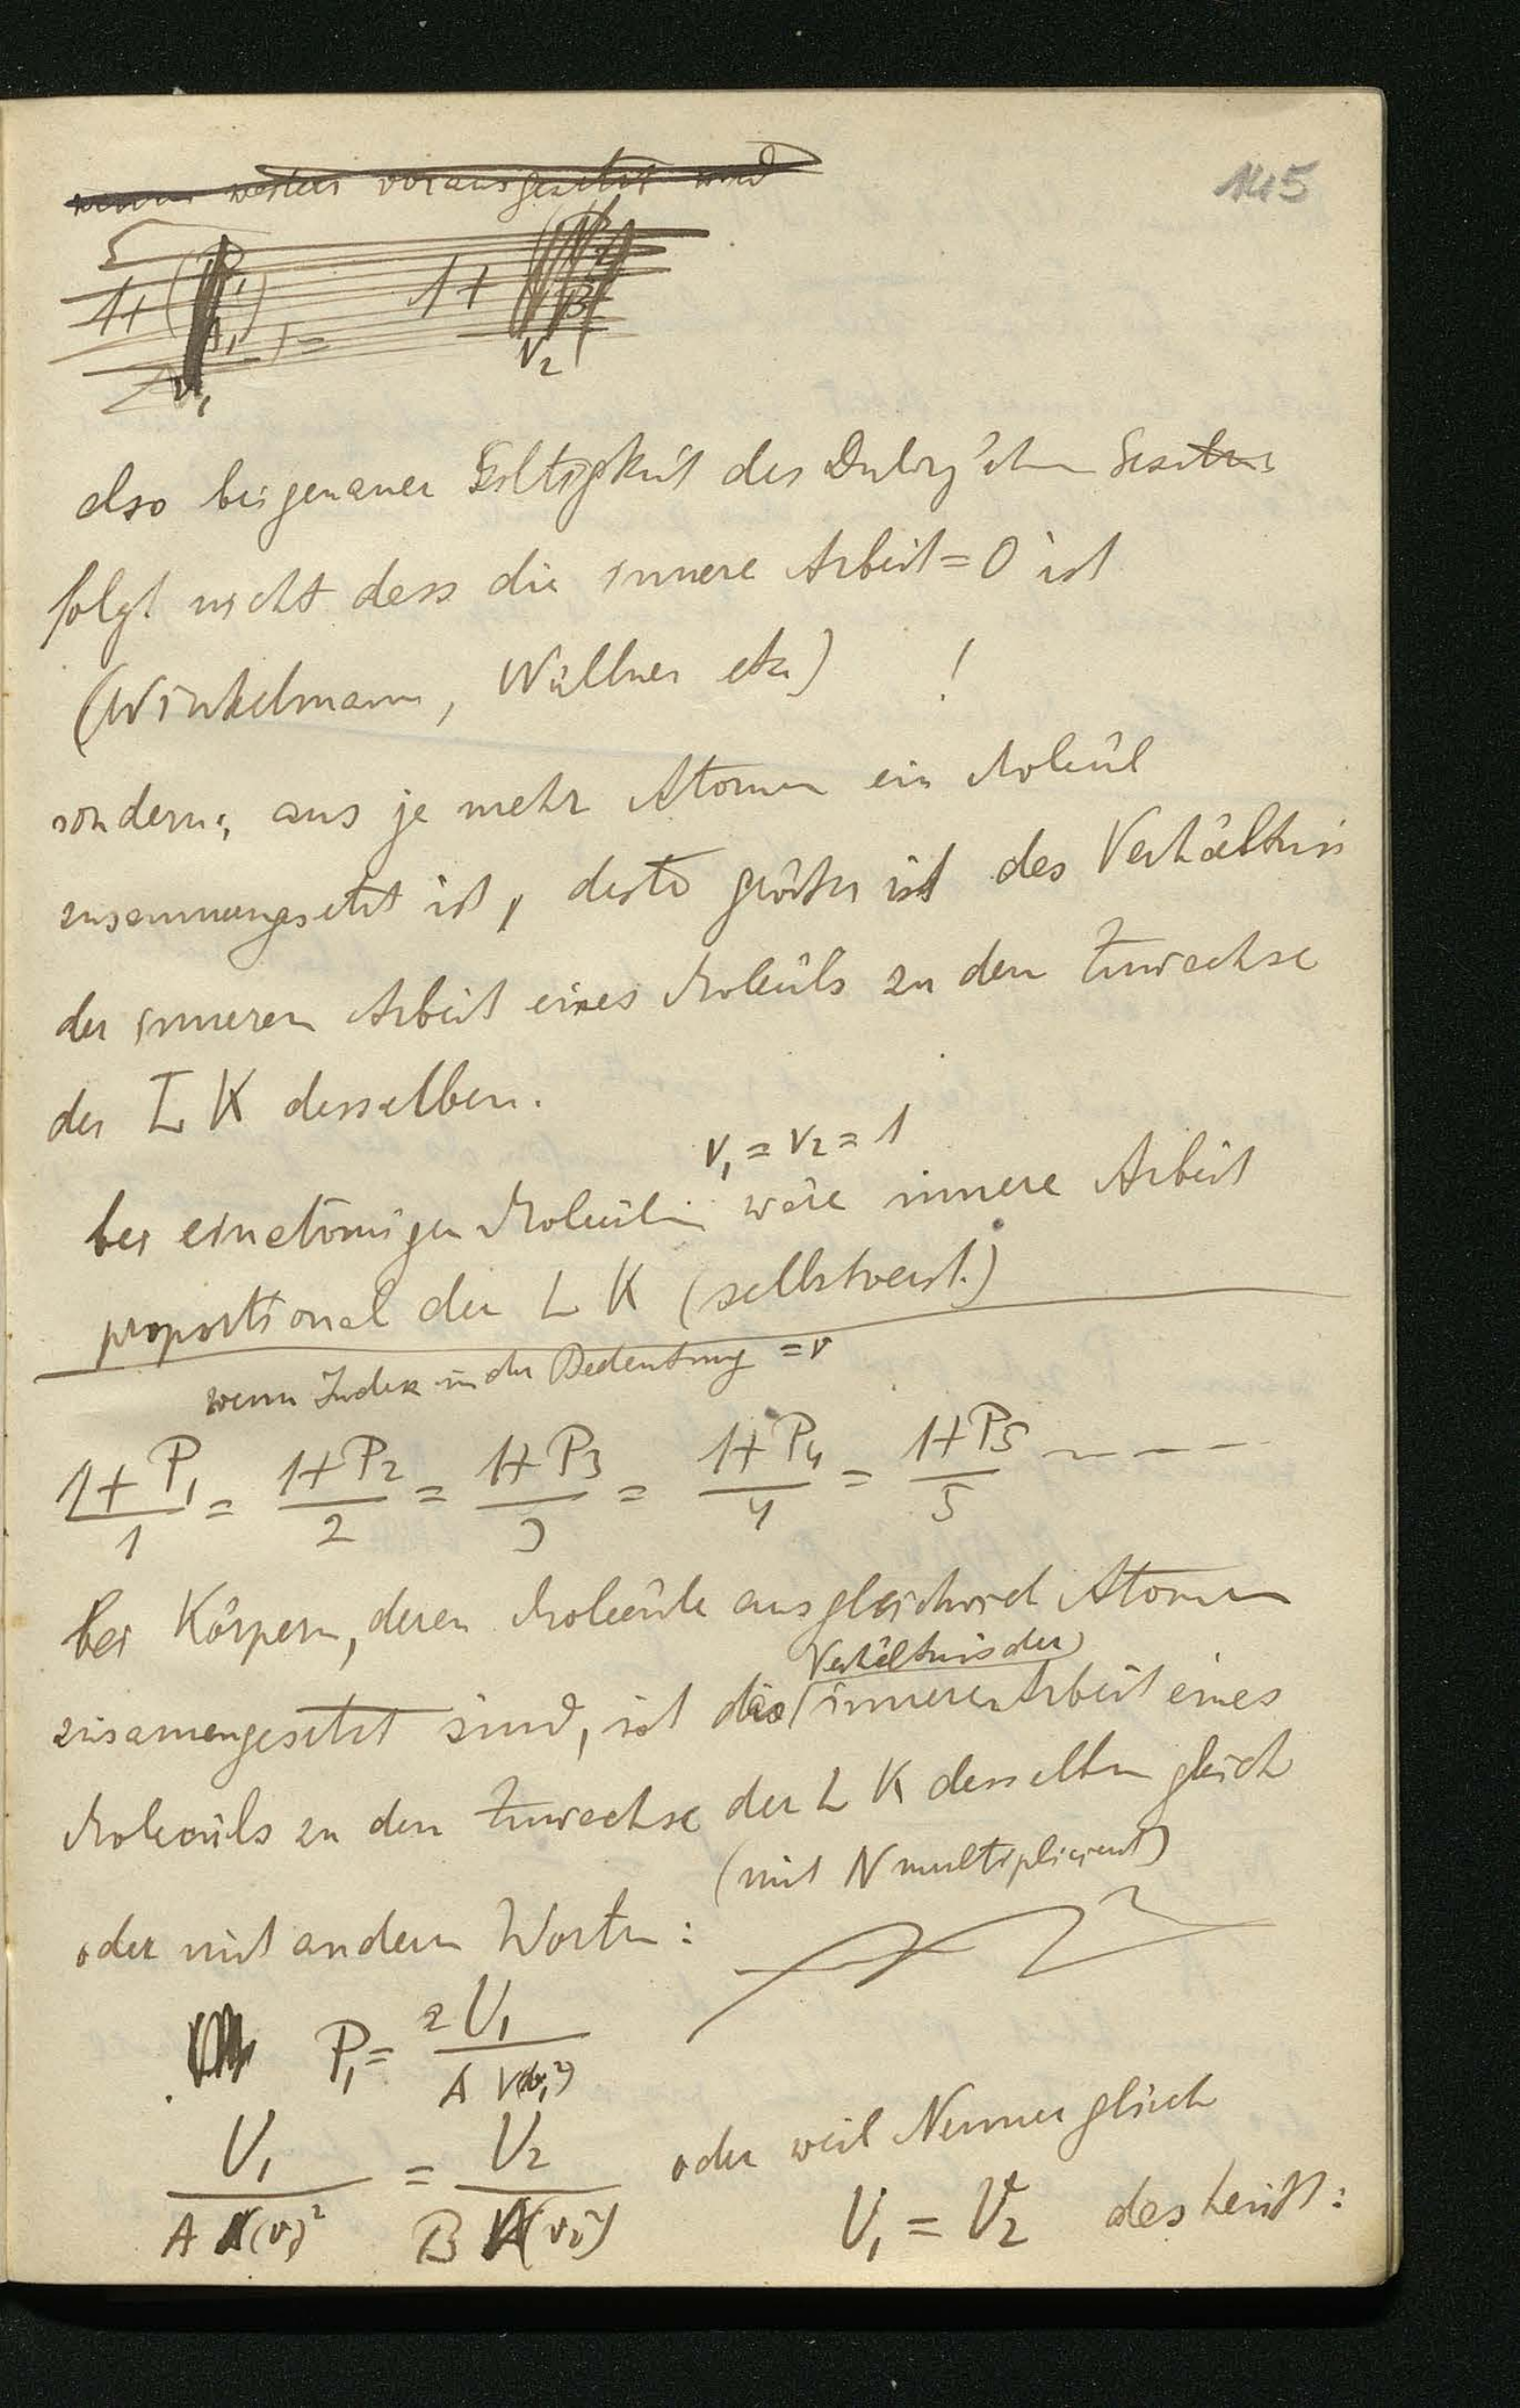 145
weiters vorausgesetzt wird
1+(P₁/A₁)/v₁ = 1+ /v₂
also bei genauer Giltigkeit des Dulong'schen Gesetzes
folgt nicht dass die innere Arbeit = 0 ist
(Winkelmann, Wüllner etc) !
sondern: aus je mehr Atomen ein Molecül
zusammengesetzt ist, desto größer ist das Verhältnis
der inneren Arbeit eines Molecüls zu dem Zuwachse
der L K desselben.
v₁ = v₂ = 1
bei einatomigen Molecülen wäre innere Arbeit
proportional der L K (selbstverst.)
wenn Index in der Bedeutung = v
(1+P₁)/1 = (1+P₂)/2 = (1+P₃)/3 = (1+P₄)/4 = (1+P₅)/5 – – – –
bei Körpern, deren Molecüle aus gleichviel Atomen
Verhältnis der
zusamengesetzt sind, ist das inneren Arbeit eines
Molecüls zu dem Zuwachse der L K desselben gleich
(mit N multipliciert)
oder mit andern Worten:
P₁ = 2U₁/A V(v₁²)
U₁/A (v₁)² = U₂/B (v₂²) oder weil Nenner gleich
U₁ = U₂ das heißt: